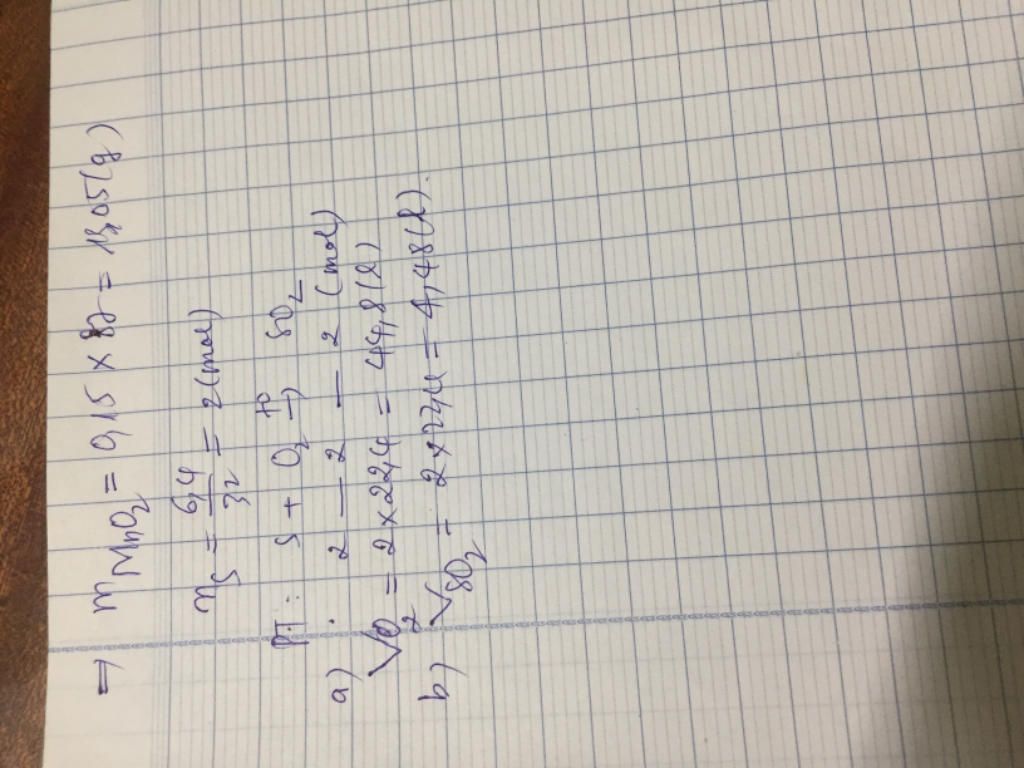 => mMnO2 = 0,15 x 87 = 13,05(g)
nS = 6,4/32 = 2(mol)
PT: S + O2 to→ SO2
2 — 2 — 2 (mol)
a) VO2 = 2 x 22,4 = 44,8(l)
b) VSO2 = 2 x 22,4 = 4,48(l).